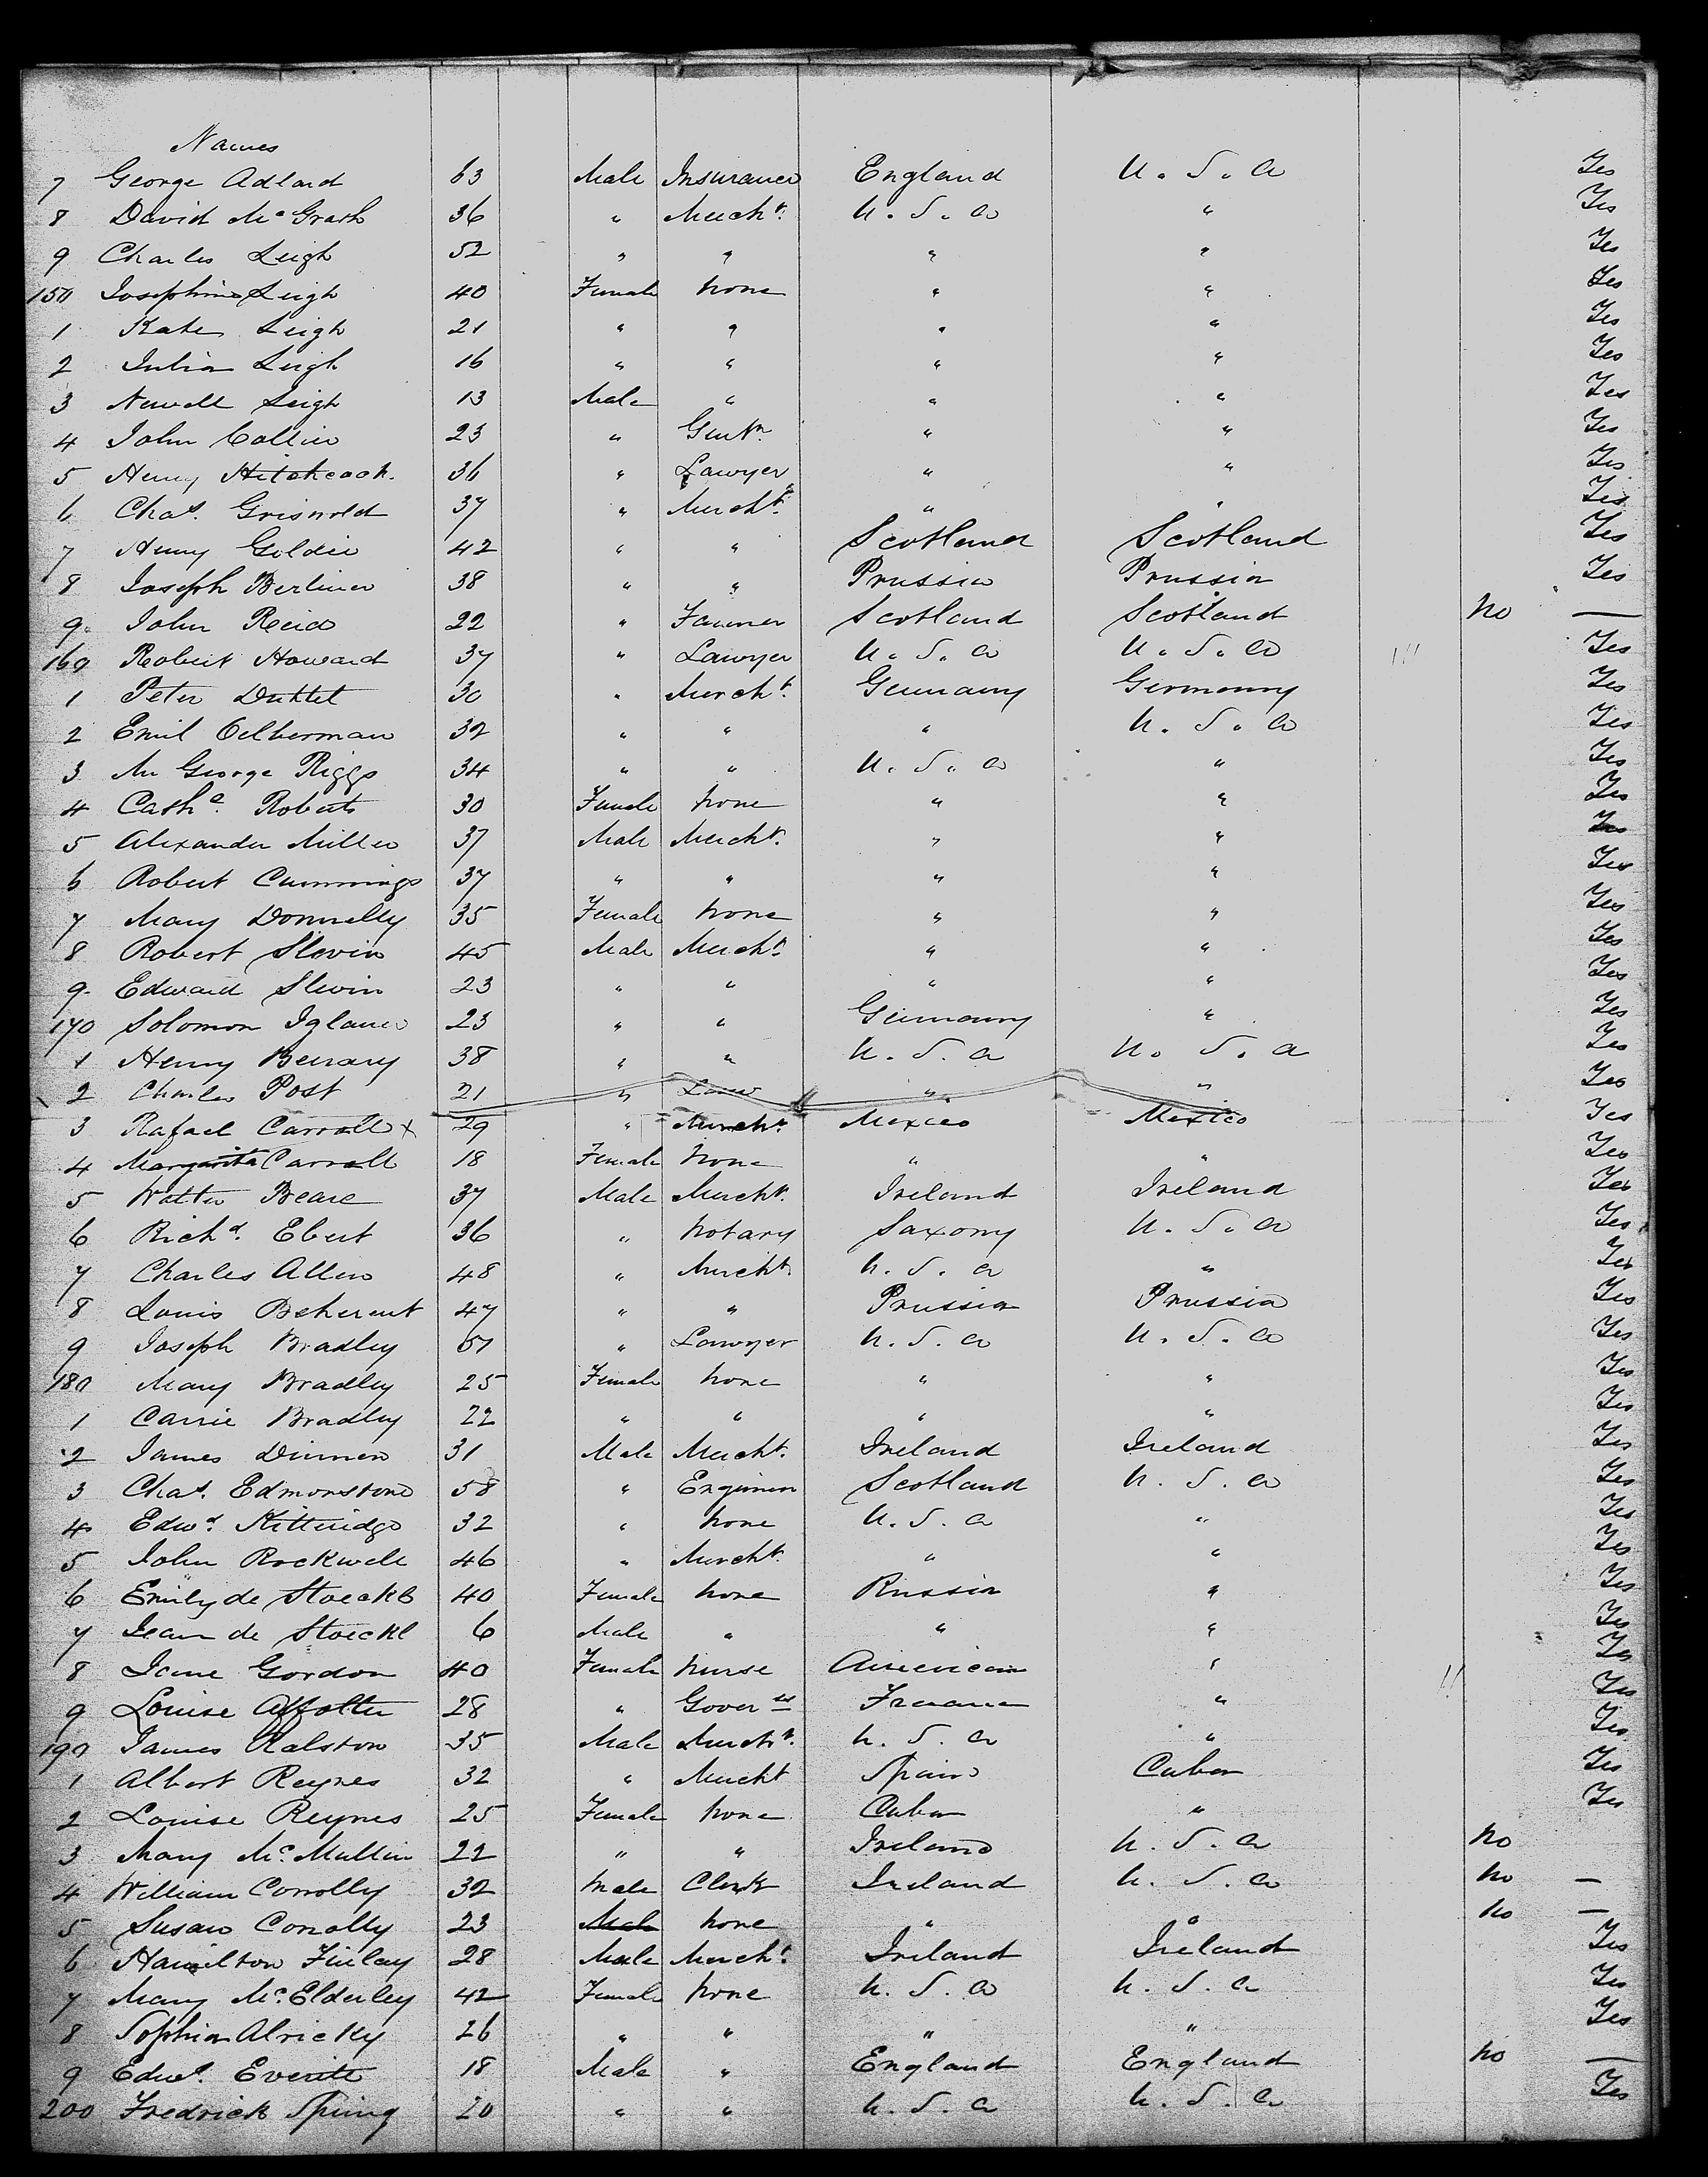 Names
7 George Adlard 63 Male Insurance England U.S.A Yes
8 David McGrath 36 " Mercht. U.S.A " Yes
9 Charles Leigh 52 " " " " Yes
150 Josephine Leigh 40 Female None " " Yes
1 Kate Leigh 21 " " " " Yes
2 Julia Leigh 16 " " " " Yes
3 Newell Leigh 13 Male " " " Yes
4 John Collier 23 " Gentn. " " Yes
5 Henry Hitchcock. 36 " Lawyer " " Yes
6 Chas. Griswold 37 " Mercht. " " Yes
7 Henry Goldie 42 " " Scotland Scotland Yes
8 Joseph Berliner 38 " " Prussia Prussia Yes
9 John Reid 22 " Farmer Scotland Scotland No —
160 Robert Howard 37 " Lawyer U.S.A U.S.A Yes
1 Peter 30 " Mercht. Germany Germany Yes
2 Emil Oelberman 32 " " " U.S.A Yes
3 Mr George Riggs 34 " " U.S.A " Yes
4 Cathe. Roberts 30 Female None " " Yes
5 Alexander Miller 37 Male Mercht. " " Yes
6 Robert Cummings 37 " " " " Yes
7 Mary Donnelly 35 Female None " " Yes
8 Robert Slevin 45 Male Mercht. " " Yes
9 Edward Slevin 23 " " " " Yes
170 Solomon Iglauer 23 " " Germany " Yes
1 Henry 38 " " U.S.A U.S.A Yes
2 Charles Post 21 " Law " " Yes
3 Rafael Carroll x 29 " Mercht. Mexico Mexico Yes
4 Margarita Carroll 18 Female None " " Yes
5 Walter Beare 37 Male Mercht. Ireland Ireland Yes
6 Richd. Ebert 36 " Notary Saxony U.S.A Yes
7 Charles Allen 48 " Mercht. U.S.A " Yes
8 Louis Beherent 47 " " Prussia Prussia Yes
9 Joseph Bradley " Lawyer U.S.A U.S.A Yes
180 Mary Bradley 25 Female None " " Yes
1 Carrie Bradley 22 " " " " Yes
2 James Dinnen 31 Male Mercht. Ireland Ireland Yes
3 Chas. Edmonstone 58 " Engineer Scotland U.S.A Yes
4 Edwd. Kittridge 32 " None U.S.A " Yes
5 John Rockwell 46 " Mercht. " " Yes
6 Emily de Stoeckl 40 Female None Russia " Yes
7 Jean de Stoeckl 6 Male " " " Yes
8 Jane Gordon 40 Female Nurse American " Yes
9 Louise Affolter 28 " Goverss France " Yes
190 James Ralston 35 Male Mercht. U.S.A " Yes
1 Albert Reynes 32 " Mercht Spain Cuba Yes
2 Louise Reynes 25 Female None Cuba " Yes
3 Mary McMullin 22 " " Ireland U.S.A No
4 William Conolly 32 Male Clerk Ireland U.S.A No —
5 Susan Conolly 23 Male None " " No —
6 Hamilton Finlay 28 Male Mercht. Ireland Ireland Yes
7 Mary McElderley 42 Female None U.S.A U.S.A Yes
8 Sophia Alricky 26 " " " " Yes
9 Edwd. Everitt 18 Male " England England No —
200 Fredrick Spring 20 " " U.S.A U.S.A Yes